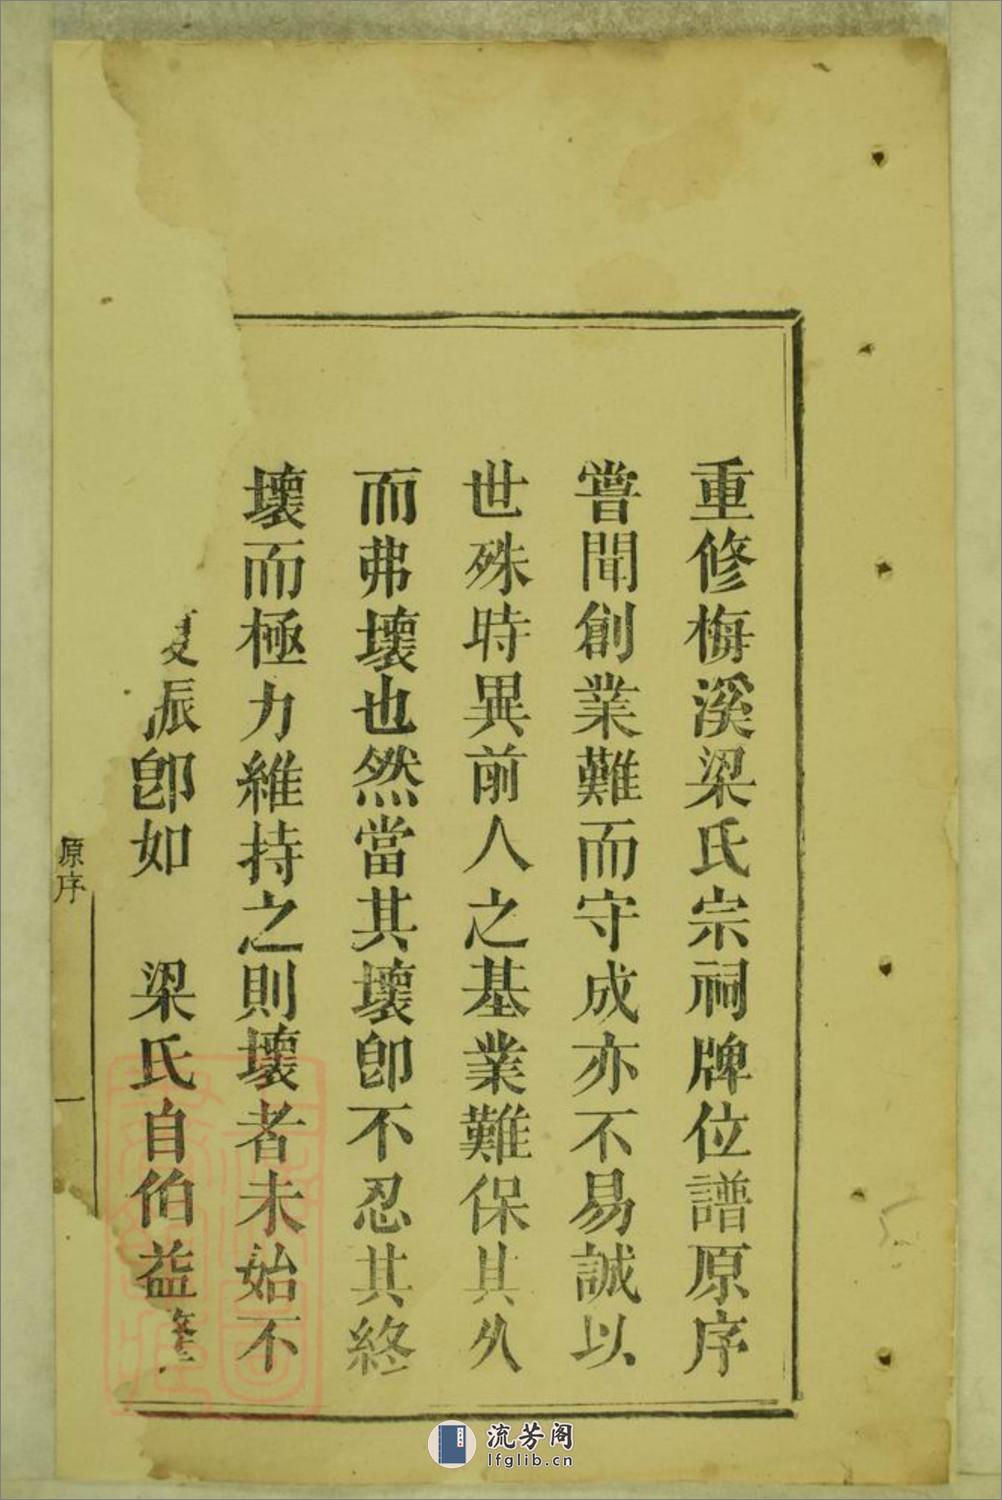 重修梅溪梁氏宗祠牌位譜原序
嘗聞創業難而守成亦不易誠以
世殊時異前人之基業難保其久
而弗壞也然當其壞卽不忍其終
壞而極力維持之則壞者未始不
振卽如 梁氏自伯益
原序
一
流芳阁
lfglib.cn